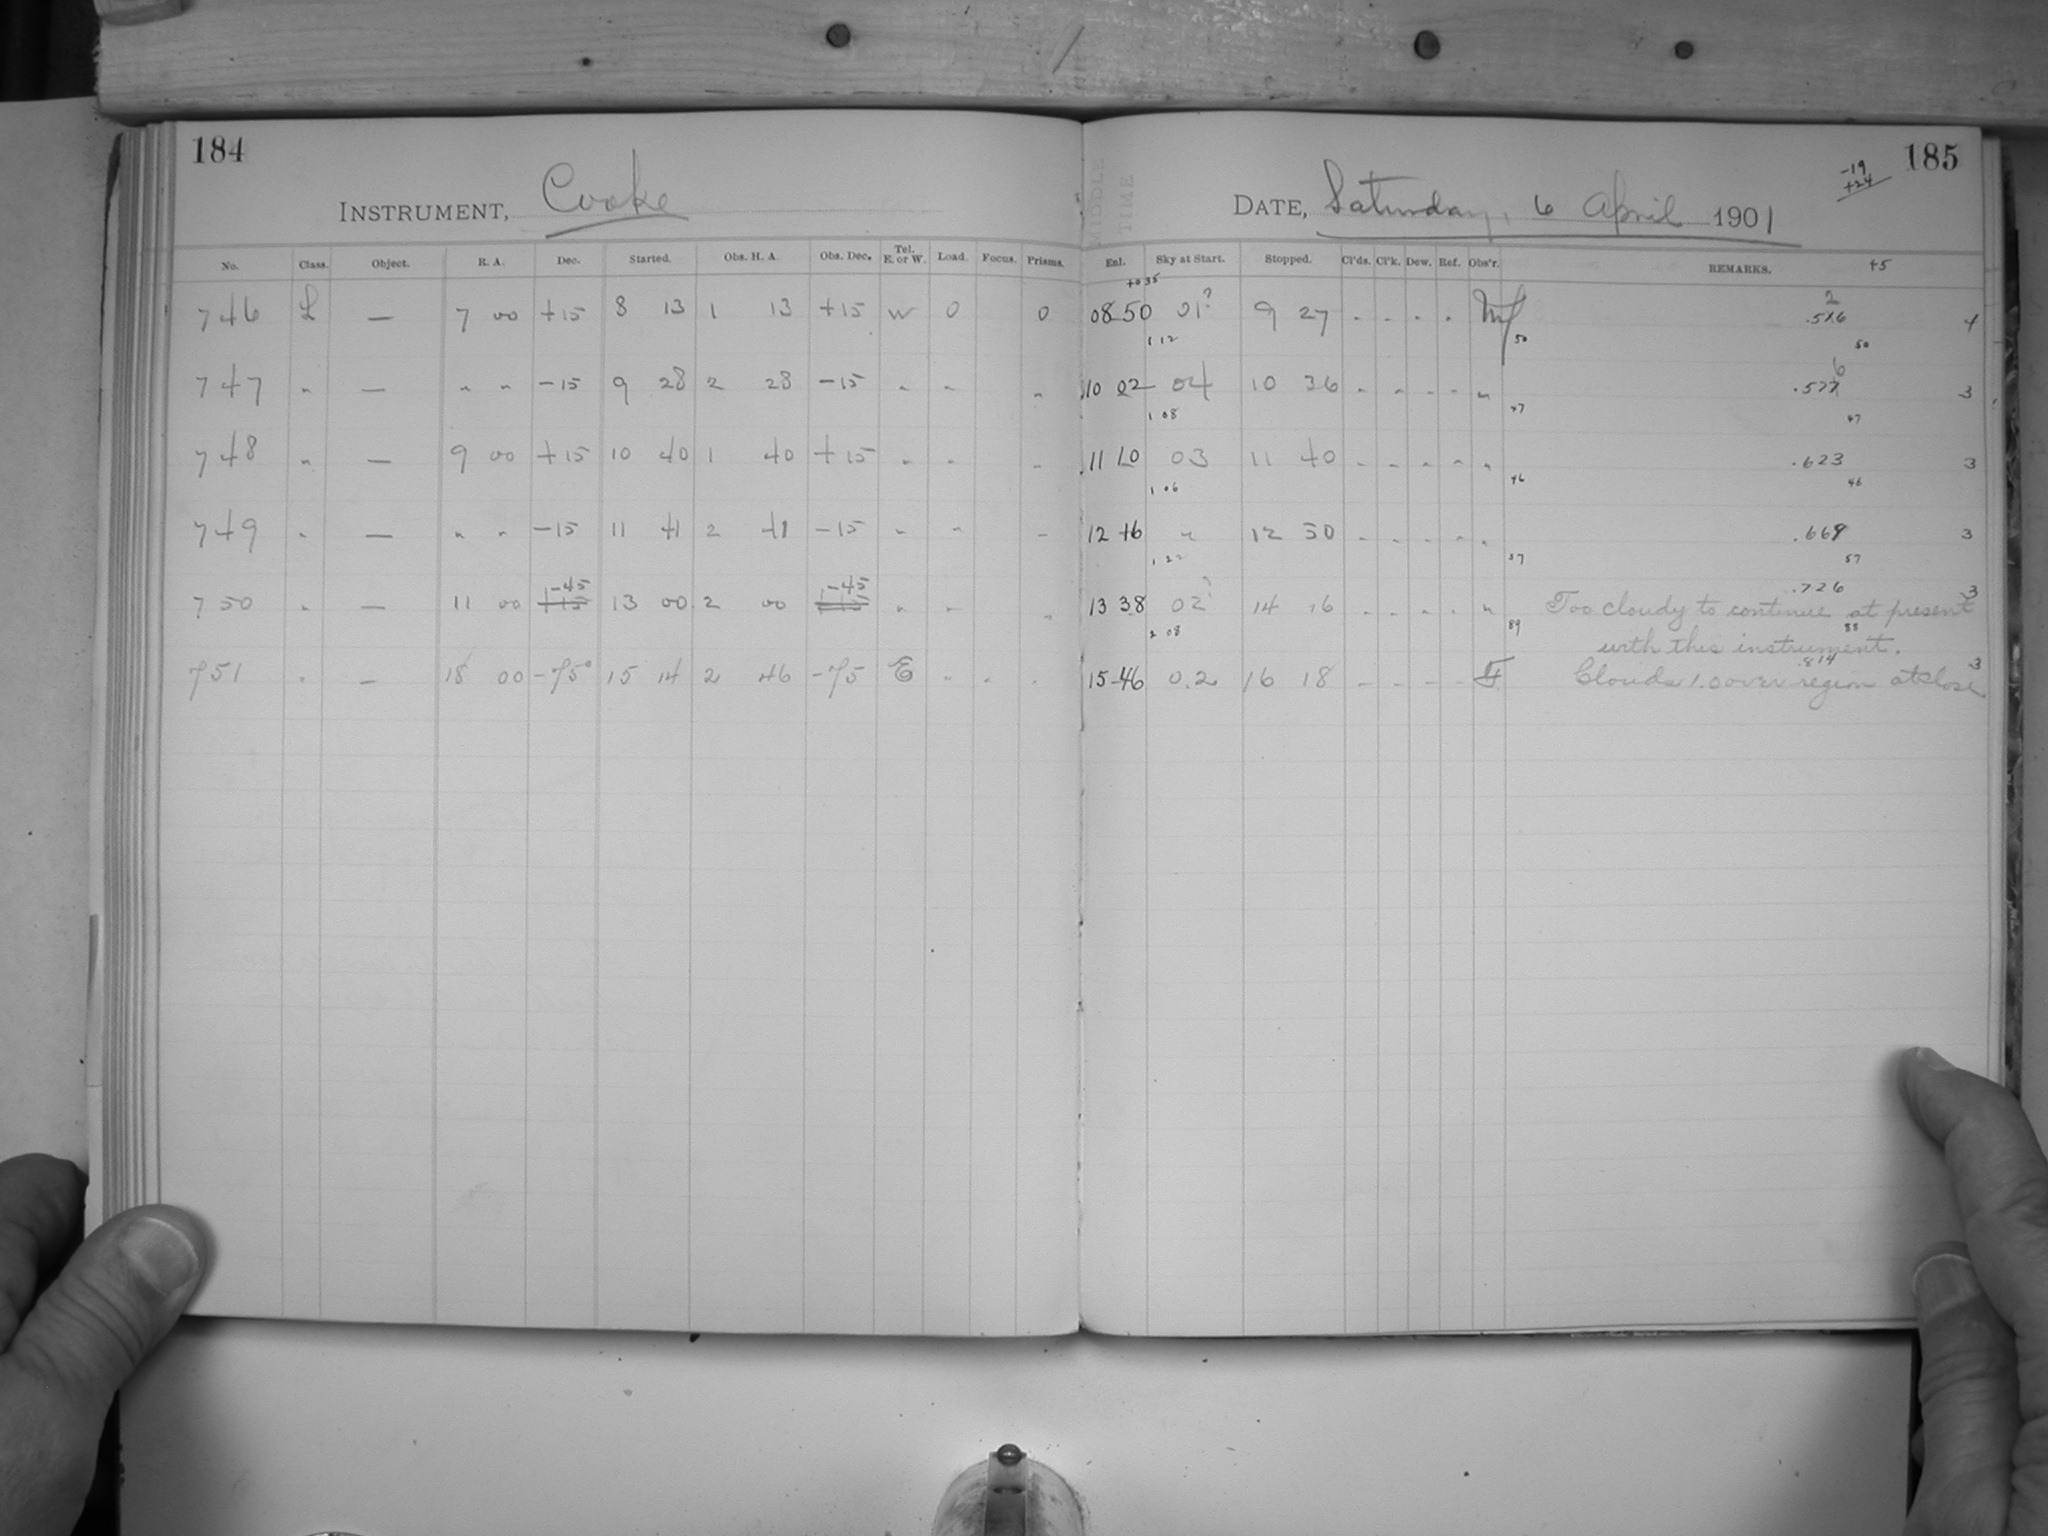 184
INSTRUMENT, Cooke
No. Class. Object. R. A. Dec. Started. Obs. H. A. Obs. Dec. Tel. E. or W. Load. Focus. Prisms.
746 L — 7 00 +15 8 13 1 13 +15 W 0 0
747 " — " " -15 9 28 2 28 -15 " " "
748 " — 9 00 +15 10 40 1 40 +15 " " "
749 " — " " -15 11 41 2 41 -15 " " "
750 " — 11 00 -45 13 00 2 00 -45 " " "
751 " — 18 00 -75° 15 14 2 46 -75 E " " "
MIDDLE TIME
185
-19
+24
DATE, Saturday, 6 April 1901
Enl. Sky at Start. Stopped. Cl'ds. Cl'k. Dew. Ref. Obs'r. REMARKS. 45
+0 35
2
08 50 01? 9 27 " " " " .516 4
1 12 50 50
6
10 02 04 10 36 " " " " " .577 3
1 08 47 47
11 10 03 11 40 " " " " " .623 3
1 06 46 46
12 16 " 12 50 " " " " " .669 3
1 22 57 57
.726 3
13 38 02? 14 16 " " " " " Too cloudy to continue at present
2 08 89 88
with this instrument.
.814 3
15 46 0.2 16 18 " " " " Clouds 1.0 over region at close